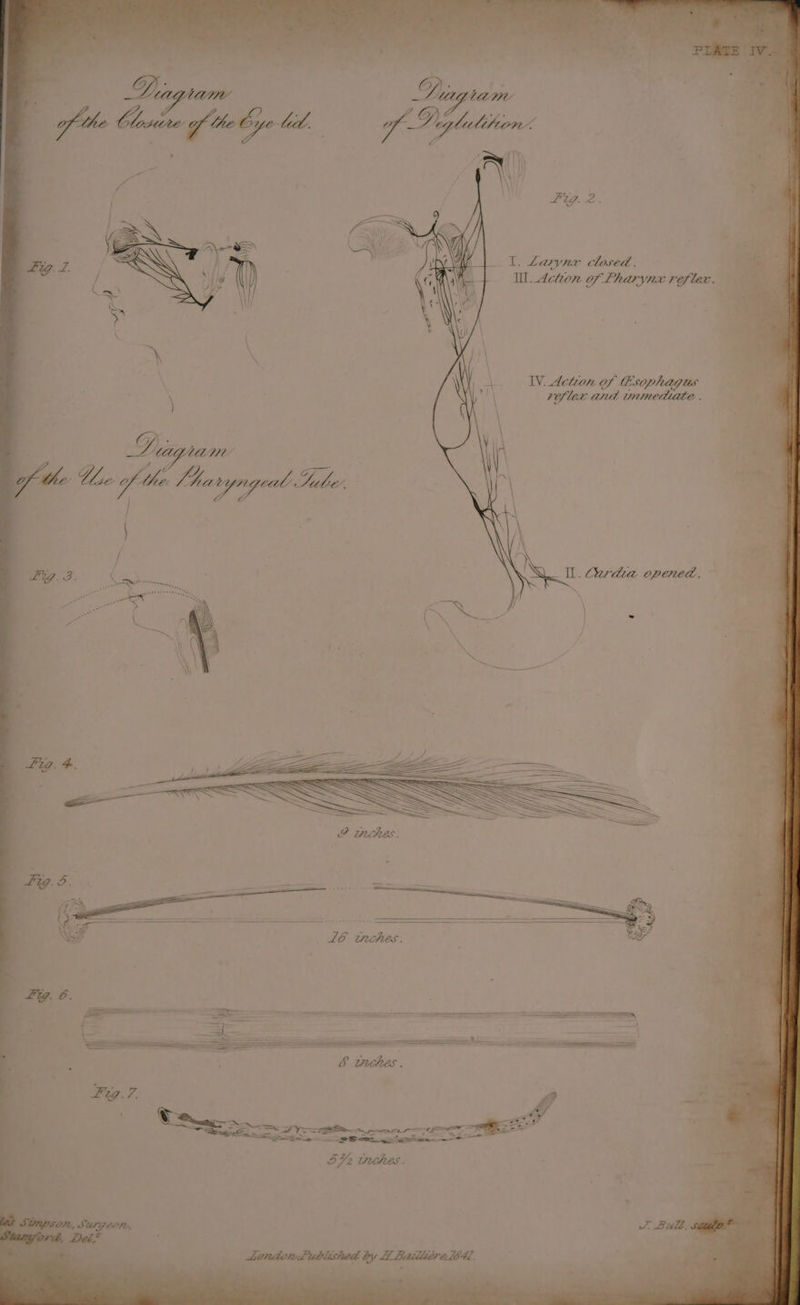 PLATE IV.
Diagram
of the Closure of the Eye-lid.
Diagram
of Deglutition.
Fig. 2.
Fig. 1.
I. Larynx closed.
III. Action of Pharynx reflex.
IV. Action of Œsophagus
reflex and immediate.
Diagram
of the Use of the Pharyngeal Tube.
Fig. 3.
II. Cardia opened.
Fig. 4.
9 inches.
Fig. 5.
16 inches.
Fig. 6.
8 inches.
Fig. 7.
5½ inches.
Simpson, Surgeon,
Stamford, Delt.
J. Bull, sculpt.
London. Published by H. Bailliere 1841.